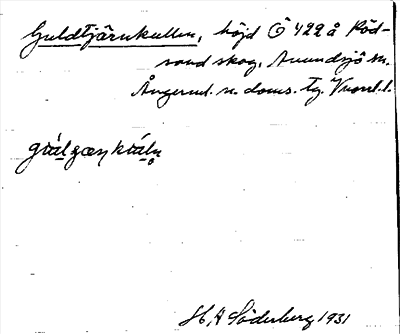 Guldtjärnkullen, höjd Ö 422 å Röd-
sand skog, Anundsjö sn.
Ångerml. n. doms. tg. Vnorrl. l.
H. A Söderberg 1931